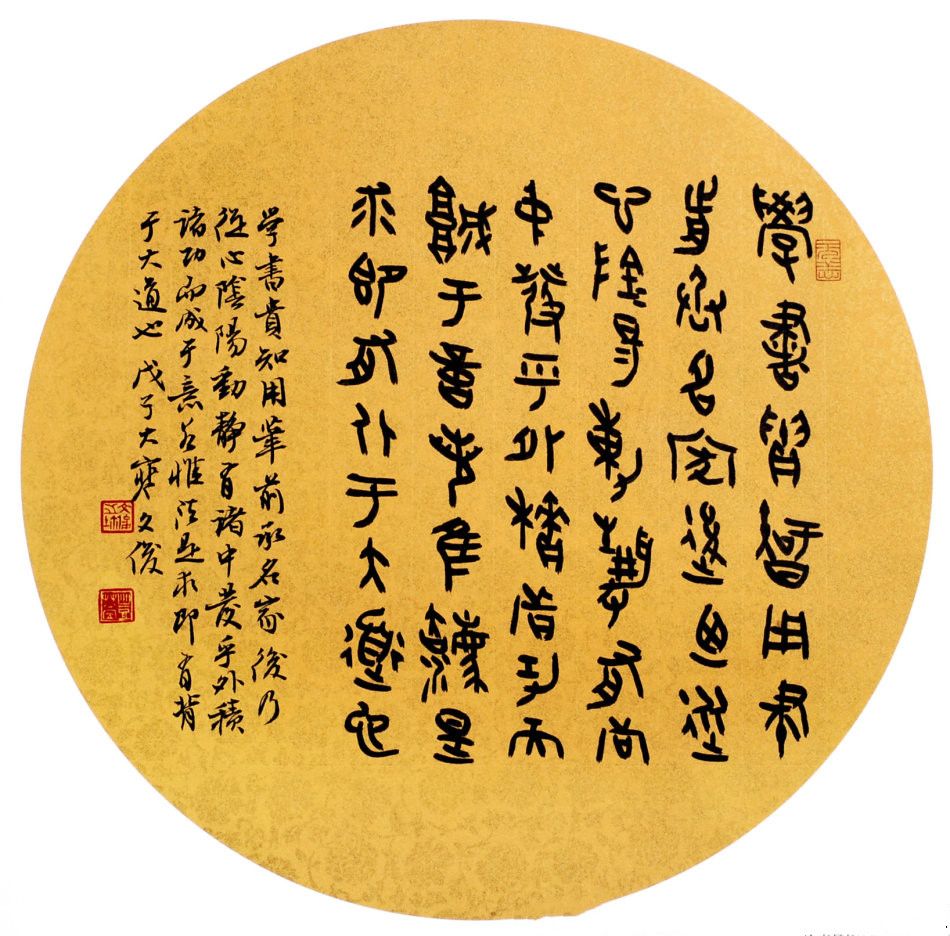 學書貴智用筆
前承名家後迺從
心陰陽動靜有者
中發乎外積者功而
誠于意若隹灋是
求即有北于大道也
学書貴知用筆前承名家後乃
從心陰陽動静有諸中發乎外積
諸功而成于意若惟法是求即有背
于大道也戊子大寒文俊